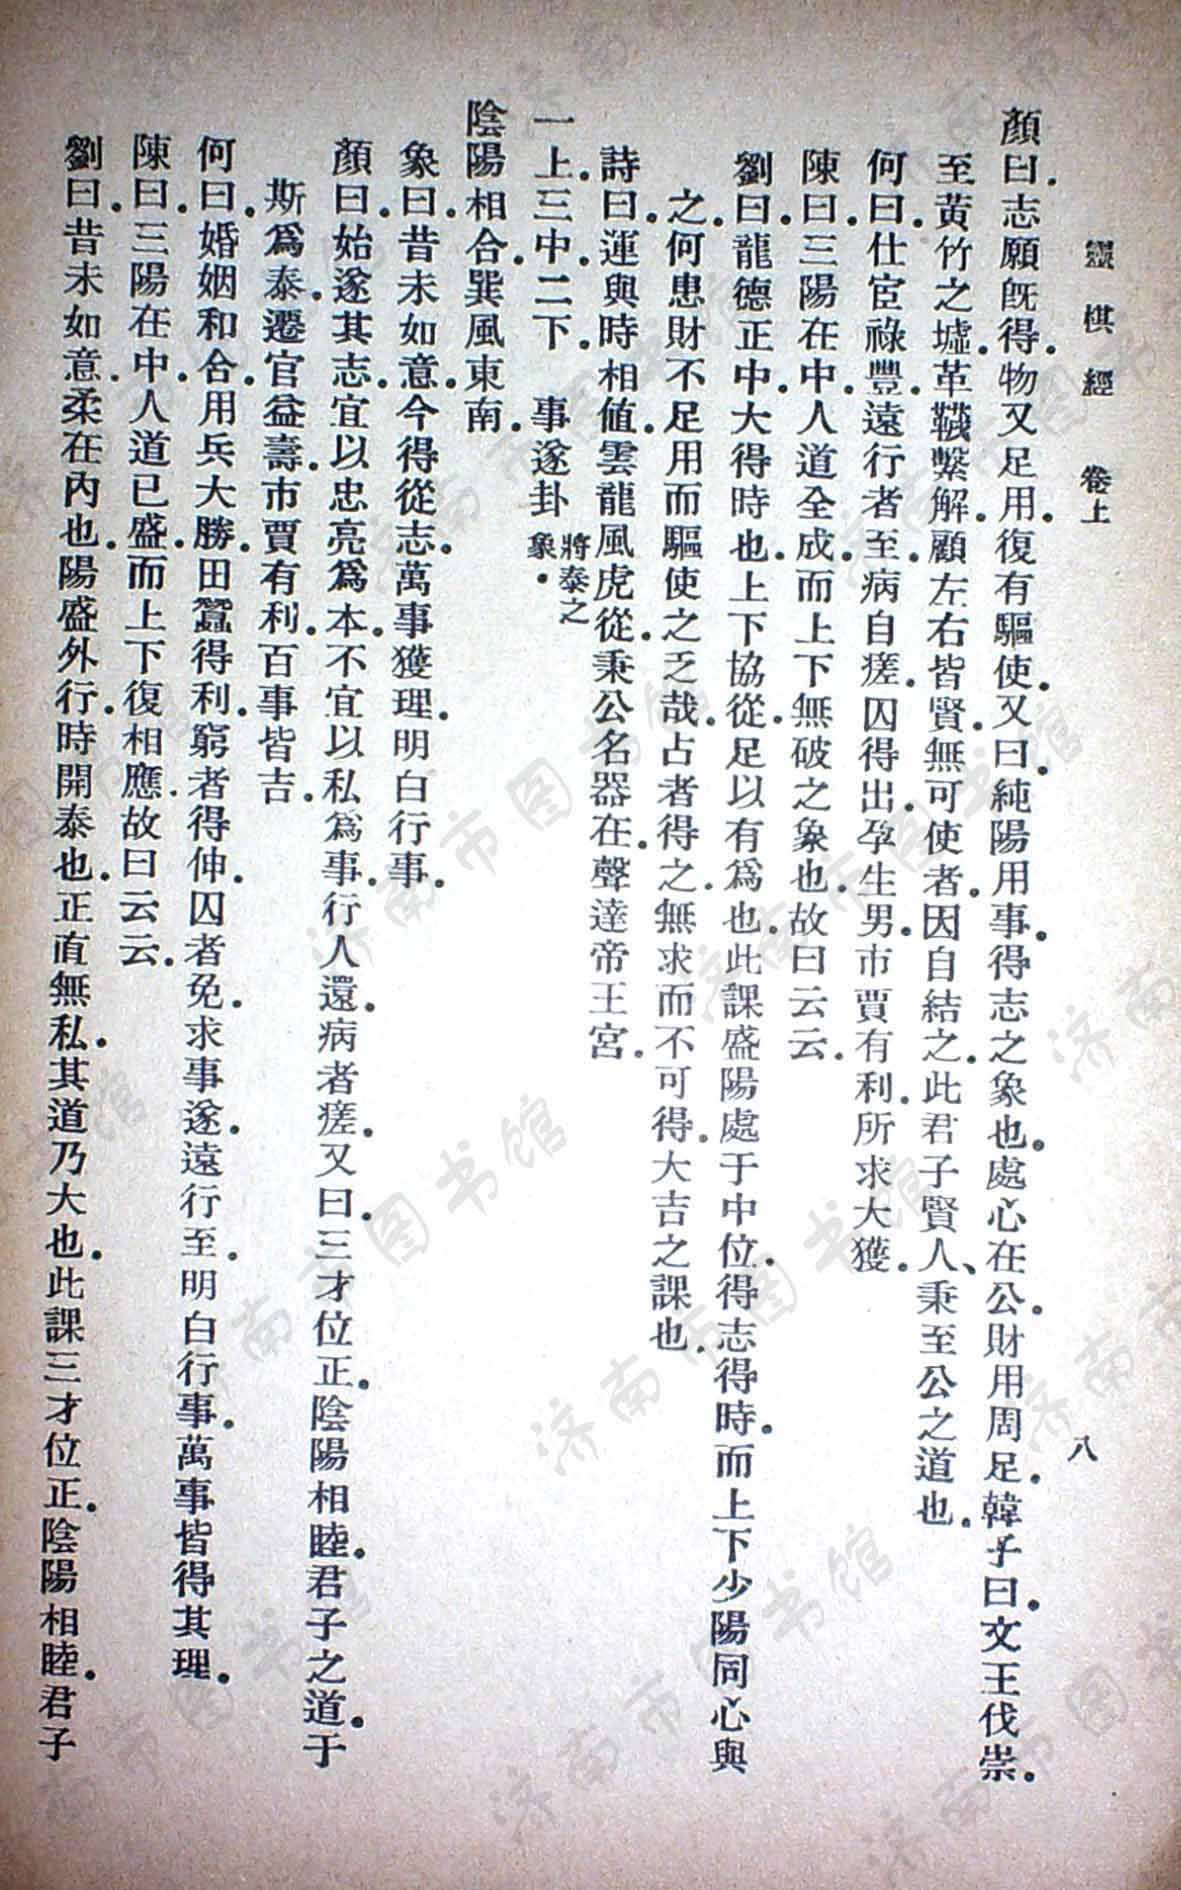 靈棋經 卷上 八
顏曰．志願旣得．物又足用．復有驅使．又曰．純陽用事．得志之象也．處心在公．財用周足．韓子曰．文王伐崇．
至黃竹之墟．革韈繫解．顧左右皆賢．無可使者．因自結之．此君子賢人、秉至公之道也．
何曰．仕宦祿豐．遠行者至．病自瘥．囚得出．孕生男．市賈有利．所求大獲．
陳曰．三陽在中．人道全成．而上下無破之象也．故曰云云．
劉曰．龍德正中．大得時也．上下協從．足以有爲也．此課盛陽處于中位．得志得時．而上下少陽同心與
之．何患財不足用．而驅使之乏哉．占者得之．無求而不可得．大吉之課也．
詩曰．運與時相値．雲龍風虎從．秉公名器在．聲達帝王宮．
一上．三中．二下． 事遂卦 將泰之象．
陰陽相合．巽風東南．
象曰．昔未如意．今得從志．萬事獲理．明白行事．
顏曰．始遂其志．宜以忠亮爲本．不宜以私爲事．行人還．病者瘥．又曰．三才位正．陰陽相睦．君子之道．于
斯爲泰．遷官益壽．市賈有利．百事皆吉．
何曰．婚姻和合．用兵大勝．田蠶得利．窮者得伸．囚者免．求事遂．遠行至．明白行事．萬事皆得其理．
陳曰．三陽在中．人道已盛．而上下復相應．故曰云云．
劉曰．昔未如意．柔在內也．陽盛外行．時開泰也．正直無私．其道乃大也．此課三才位正．陰陽相睦．君子